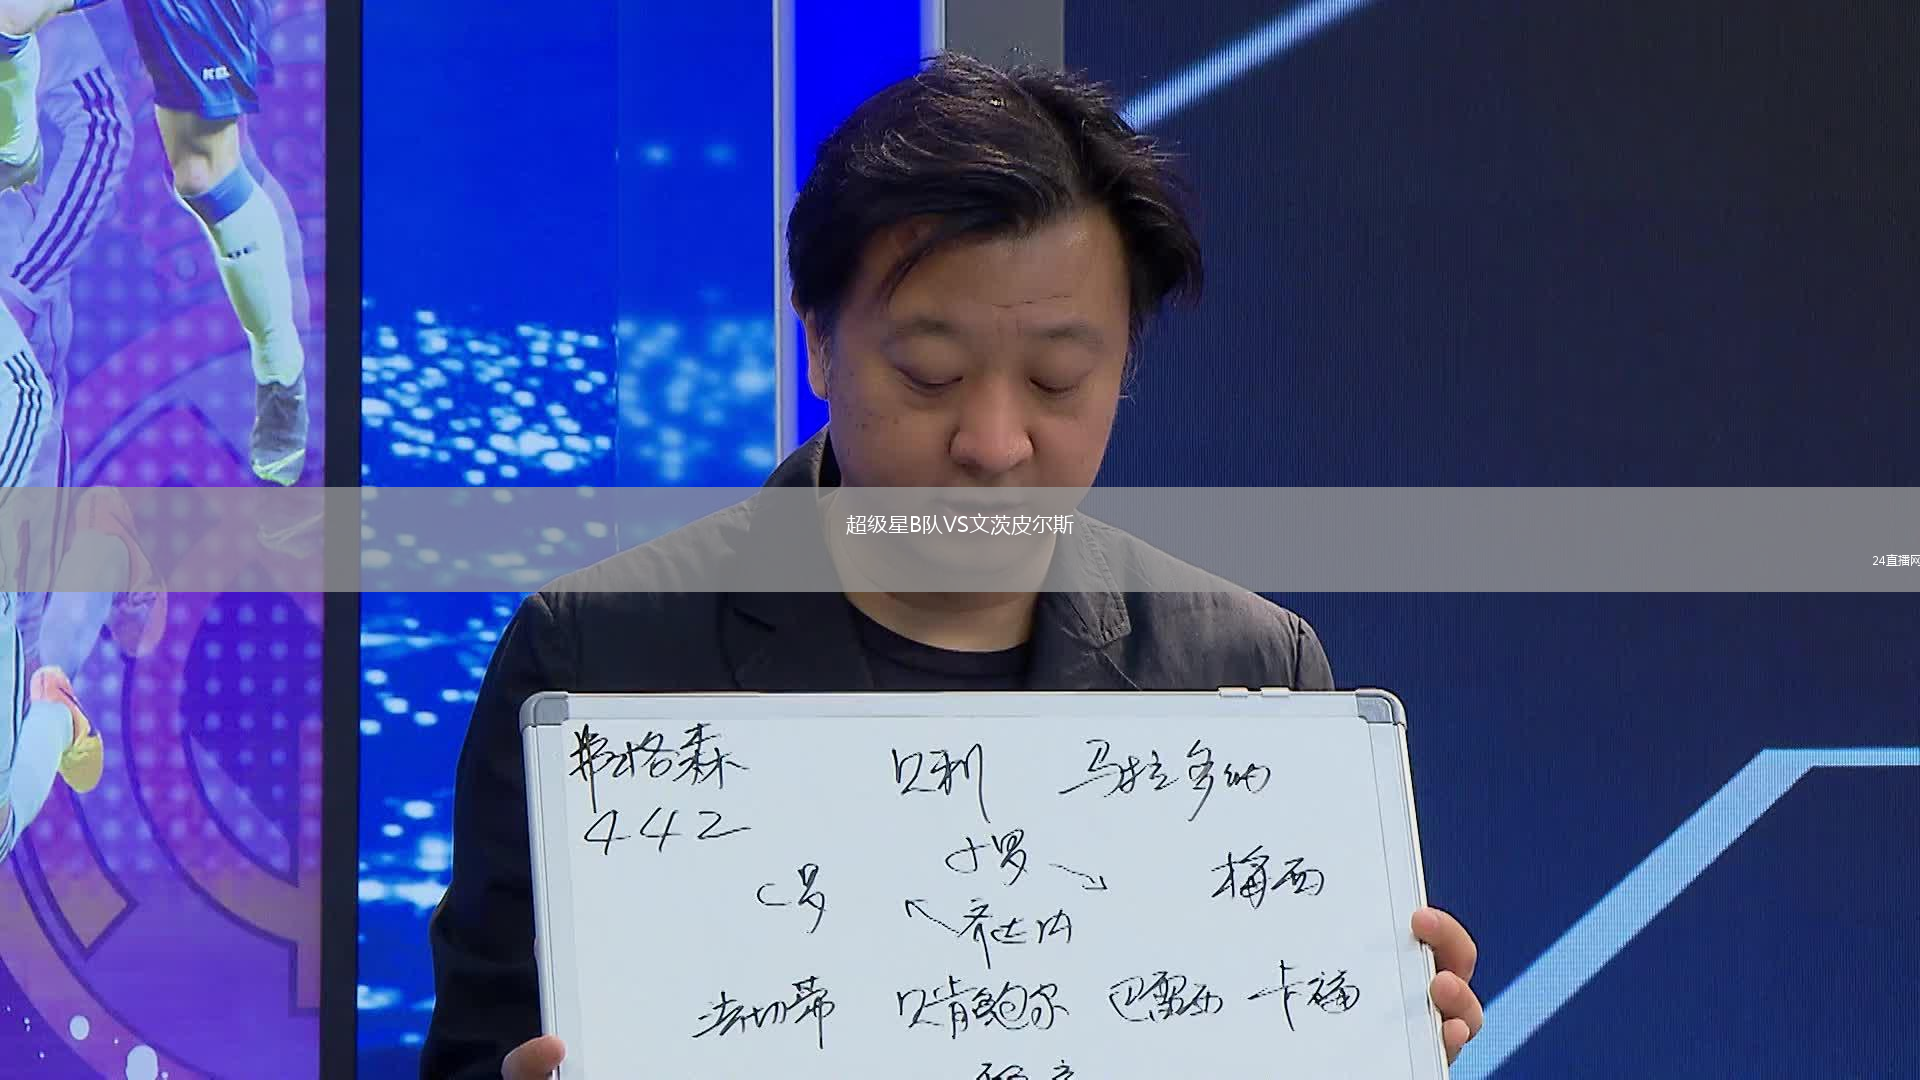 超级星B队VS文茨皮尔斯
24直播网
弗格森 贝利 马拉多纳
442
小罗
C罗 梅西
齐达内
法切蒂 贝肯鲍尔 巴雷西 卡福